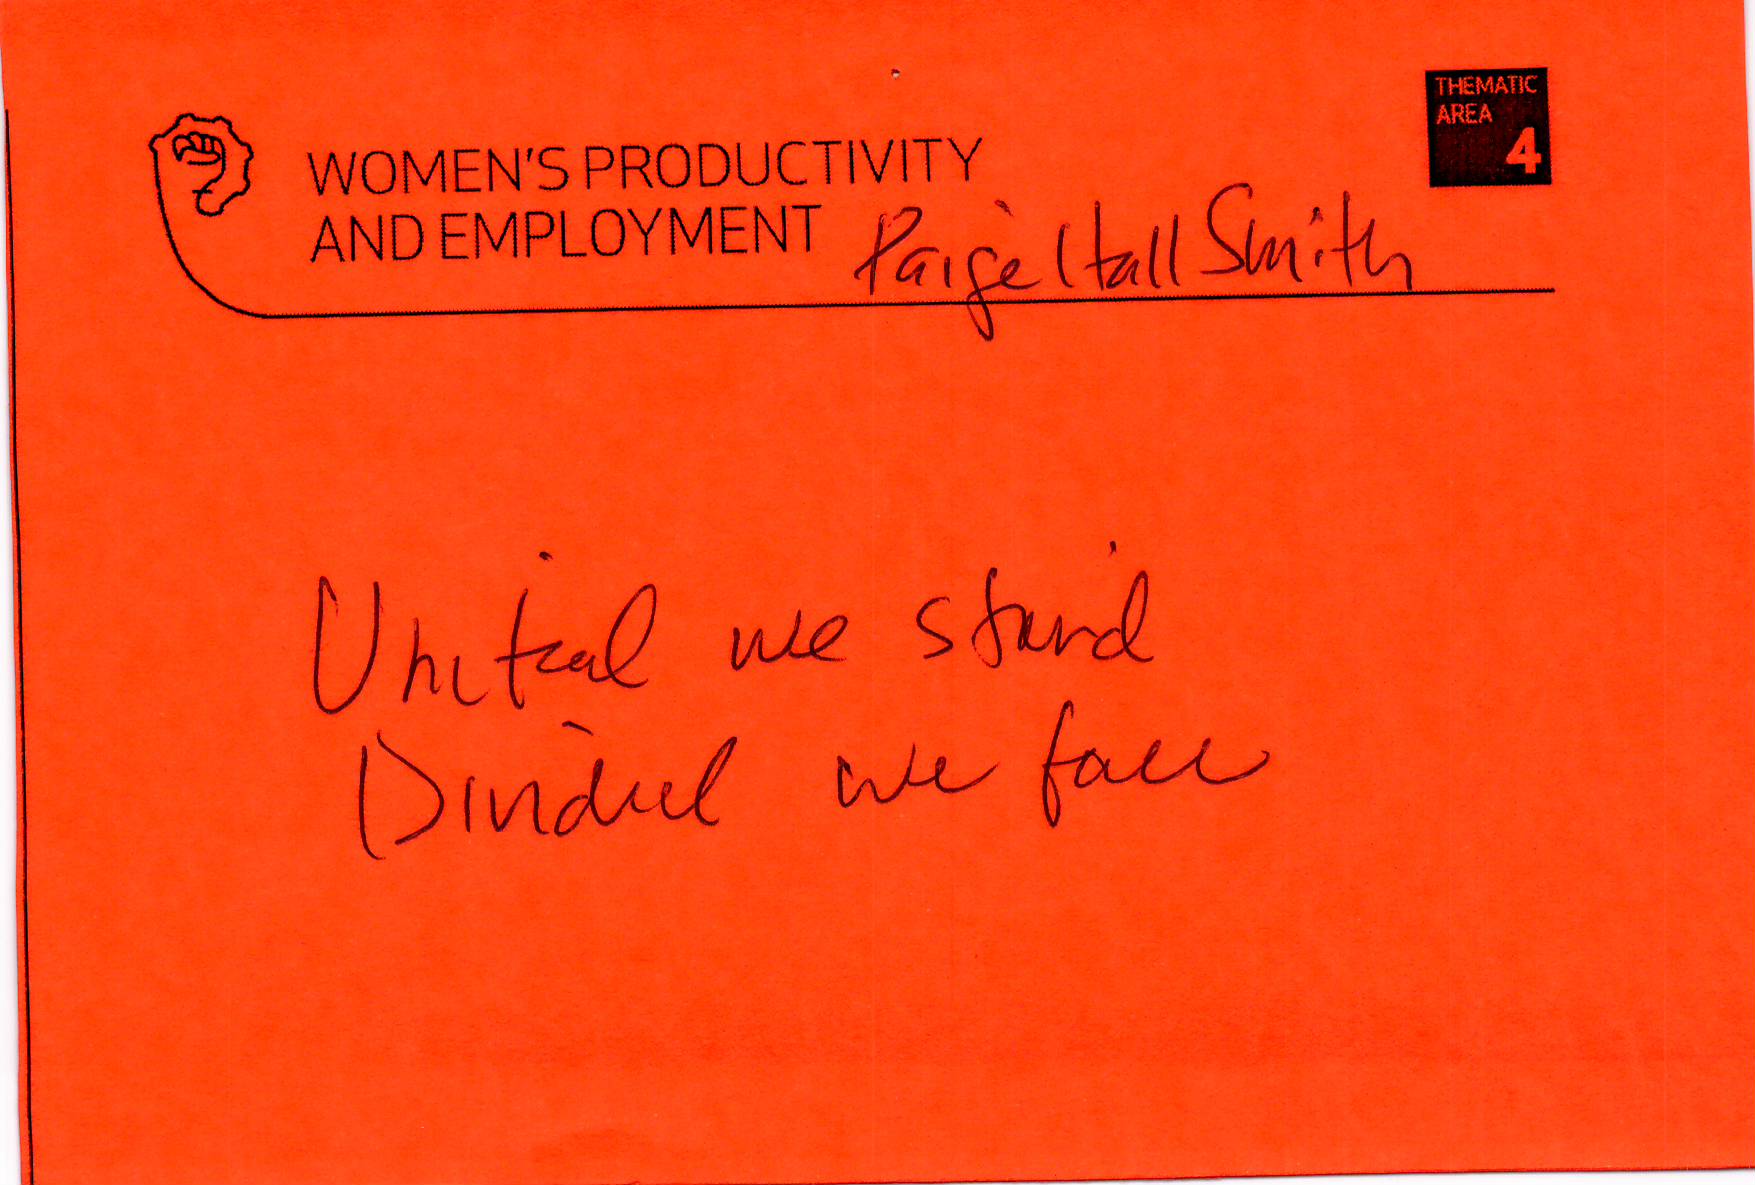 THEMATIC
AREA
4
WOMEN'S PRODUCTIVITY
AND EMPLOYMENT
Paige Hall Smith
United we stand
Divided we fall